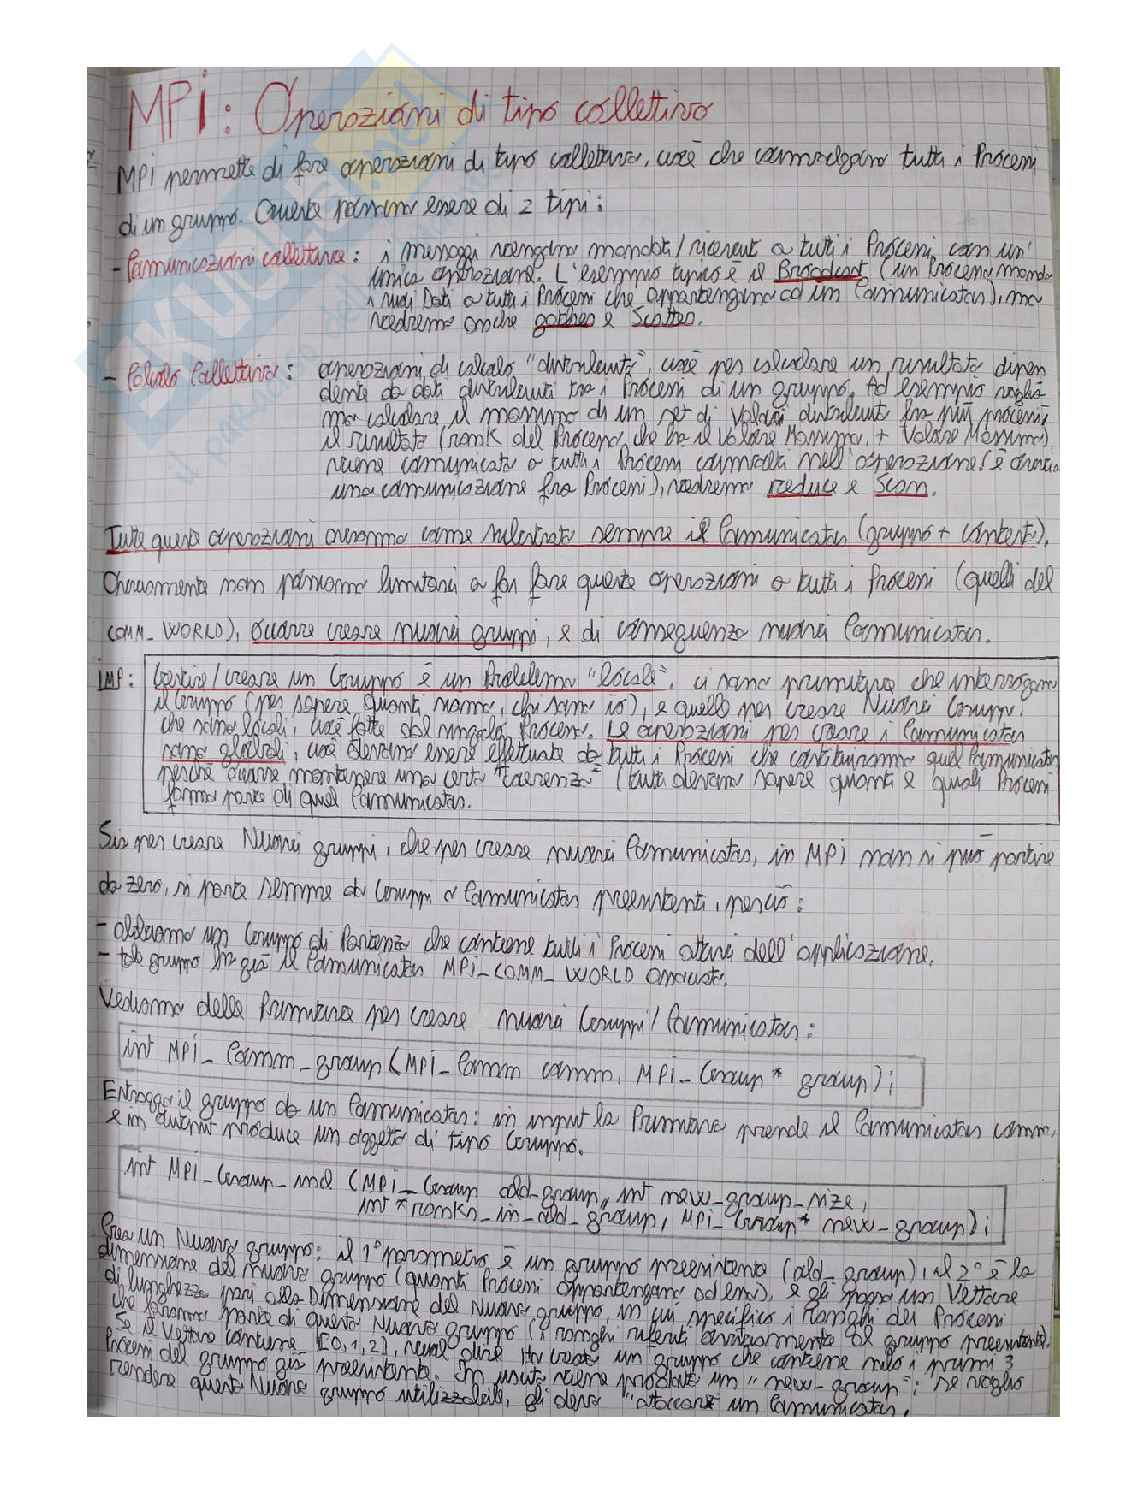 MPI: Operazioni di tipo collettivo
MPI permette di fare operazioni di tipo collettivo, cioè che coinvolgono tutti i Processi
di un gruppo. Queste possono essere di 2 tipi:
- Comunicazioni collettive: i messaggi vengono mandati/ricevuti a tutti i Processi, con un'
unica operazione. L'esempio tipico è il Broadcast (un Processo manda
i suoi Dati a tutti i Processi che appartengono ad un Comunicator), ma
vedremo anche gather e Scatter.
- Calcolo Collettivo: operazioni di calcolo "distribuite", cioè per calcolare un risultato dipen
dente da dati distribuiti tra i Processi di un gruppo. Ad esempio voglia
mo calcolare il massimo di un set di Valori distribuiti fra più processi:
il risultato (rank del Processo che ha il Valore Massimo + Valore Massimo)
viene comunicato a tutti i Processi coinvolti nell'operazione (è anche
una comunicazione fra Processi), vedremo reduce e Scan.
Tutte queste operazioni avranno come substrato sempre il Comunicator (gruppo + contesto).
Chiaramente non possiamo limitarci a far fare queste operazioni a tutti i Processi (quelli del
COMM_WORLD), occorre creare nuovi gruppi, e di conseguenza nuovi Comunicator.
IMP: Gestire/creare un Gruppo è un Problema "locale", ci sono primitive che interrogano
il Gruppo (per sapere quanti siamo, chi sono io), e quelle per creare Nuovi Gruppi
che sono locali, cioè fatte dal singolo Processo. Le operazioni per creare i Comunicator
sono globali, cioè devono essere effettuate da tutti i Processi che costituiranno quel Comunicator
perchè occorre mantenere una certa "coerenza" (tutti devono sapere quanti e quali Processi
fanno parte di quel Comunicator.
Sia per creare Nuovi gruppi, che per creare nuovi Comunicator, in MPI non si può partire
da zero, si parte sempre da Gruppi o Comunicator preesistenti, perciò:
- abbiamo un Gruppo di Partenza che contiene tutti i Processi attivi dell'applicazione.
- tale gruppo ha già il Comunicator MPI_COMM_WORLD associato.
Vediamo delle Primitive per creare nuovi Gruppi/Comunicator:
int MPI_Comm_group(MPI_Comm comm, MPI_Group* group);
Estragga il gruppo da un Comunicator: in input la Primitiva prende il Comunicator comm,
e in output produce un oggetto di tipo Gruppo.
int MPI_Group_incl (MPI_Group old_group, int new_group_size,
int *ranks_in_old_group, MPI_Group* new_group);
Crea un Nuovo gruppo: il 1° parametro è un gruppo preesistente (old_group), il 2° è la
dimensione del nuovo gruppo (quanti Processi appartengono ad essi), e gli passo un Vettore
di lunghezza pari alla Dimensione del Nuovo gruppo in cui specifico i Ranghi dei Processi
che faranno parte di questo Nuovo gruppo (i ranghi riferiti ovviamente al gruppo preesistente).
Se il Vettore contiene [0,1,2], vuol dire che creo un gruppo che contiene solo i primi 3
Processi del gruppo già preesistente. In uscita viene prodotto un "new_group"; se voglio
rendere questo Nuovo gruppo utilizzabile, gli devo "attaccare" un Comunicator.